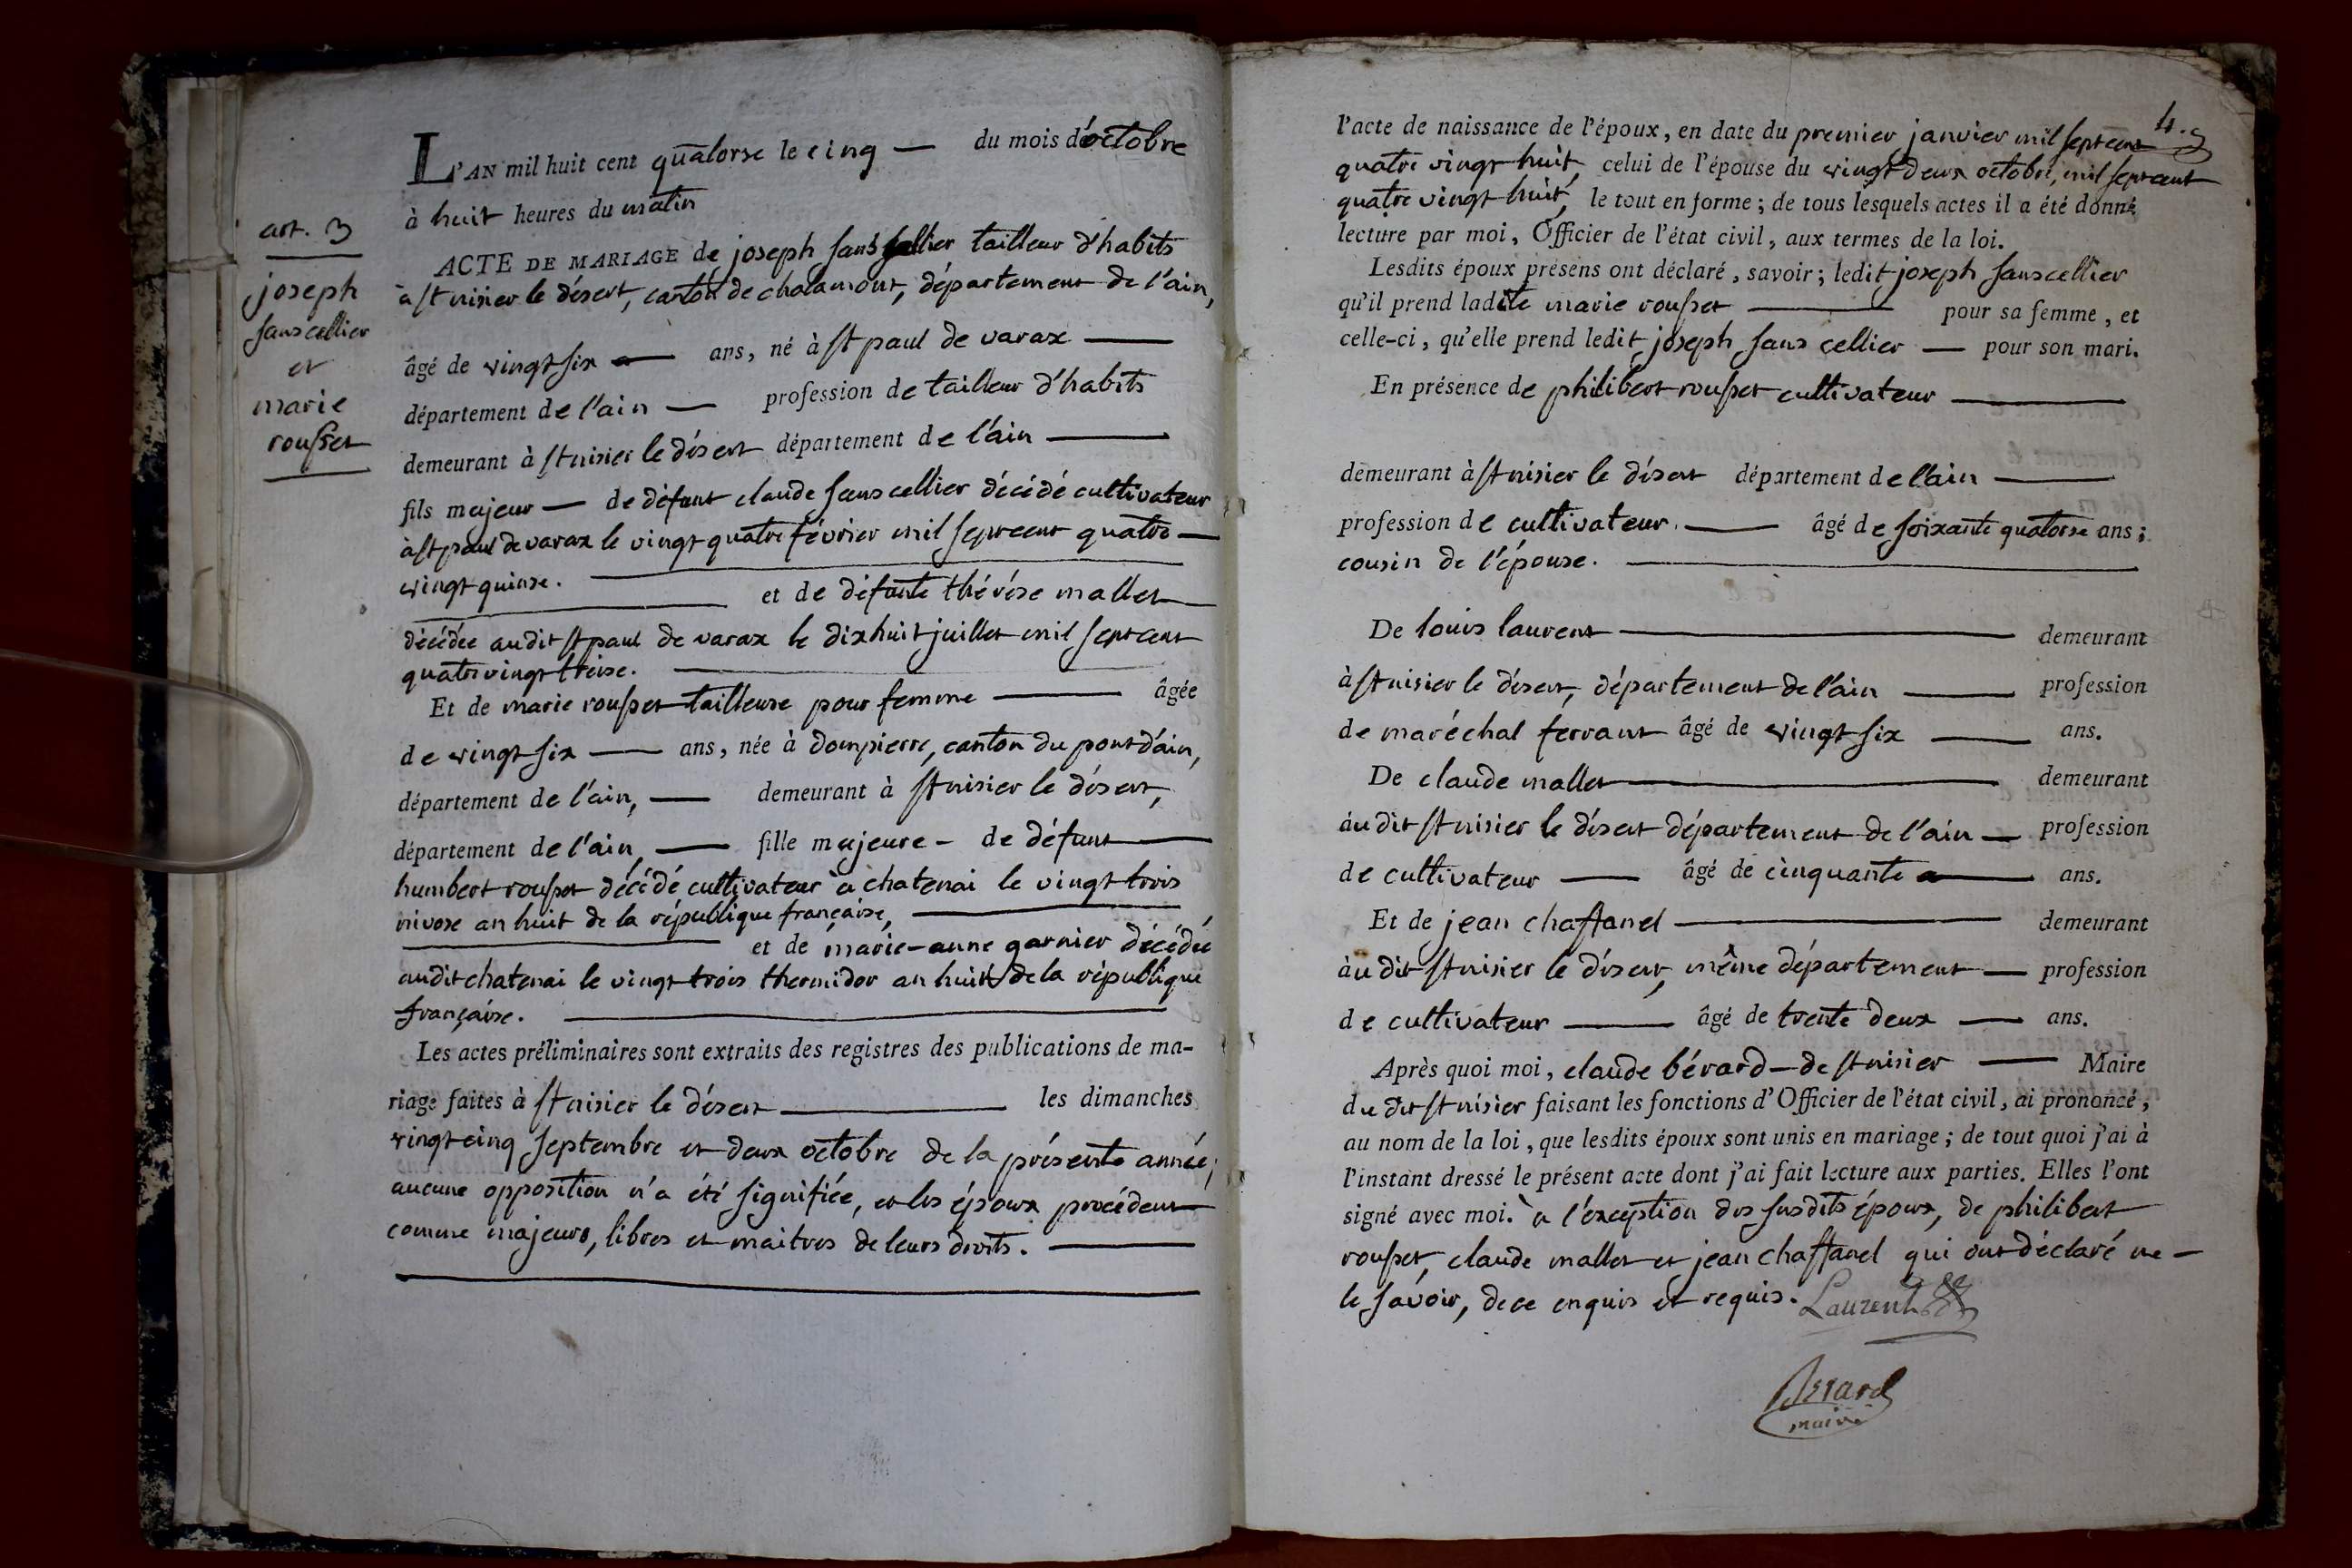 L'AN mil huit cent quatorse le cinq — du mois d'octobre
à huit heures du matin
art. 3
joseph
sanscellier
et
marie
rousset
ACTE DE MARIAGE de joseph sans sellier tailleur d'habits
à st nisier le désert, canton de chalamont, département de l'ain,
âgé de vingt six — ans, né à st paul de varax —
département de l'ain — profession de tailleur d'habits
demeurant à st nisier le désert département de l'ain —
fils majeur — de défunt claude sans cellier décédé cultivateur
à st paul de varax le vingt quatre février mil sept cent quatre —
vingt quinse. —
— et de défunte thérèse mallet —
décédée audit st paul de varax le dix huit juillet mil sept cent
quatre vingt treise. —
Et de marie rousset tailleuse pour femme — âgée
de vingt six — ans, née à dompierre, canton du pont d'ain,
département de l'ain, — demeurant à st nisier le désert,
département de l'ain, — fille majeure - de défunt —
humbert rousset décédé cultivateur à chatenai le vingt trois
nivose an huit de la république française, —
— et de marie-anne garnier décédée
audit chatenai le vingt trois thermidor an huit de la république
française. —
Les actes préliminaires sont extraits des registres des publications de ma-
riage faites à st nisier le désert — les dimanches
vingt cinq septembre et deux octobre de la présente année;
aucune opposition n'a été signifiée, et les époux procédent
comme majeurs, libres et maitres de leurs droits. —
4.
l'acte de naissance de l'époux, en date du premier janvier mil sept cent
quatre vingt huit, celui de l'épouse du vingt deux octobre, mil sept cent
quatre vingt huit, le tout en forme ; de tous lesquels actes il a été donné
lecture par moi, Officier de l'état civil, aux termes de la loi.
Lesdits époux présens ont déclaré, savoir ; ledit joseph sanscellier
qu'il prend ladite marie rousset — pour sa femme, et
celle-ci, qu'elle prend ledit joseph sans cellier — pour son mari.
En présence de philibert rousset cultivateur —
demeurant à st nisier le désert département de l'ain —
profession de cultivateur. — âgé de soixante quatorse ans ;
cousin de l'épouse. —
De louis laurent — demeurant
à st nisier le désert, département de l'ain — profession
de maréchal ferrant âgé de vingt six — ans.
De claude mallet — demeurant
au dit st nisier le désert département de l'ain — profession
de cultivateur — âgé de cinquante — ans.
Et de jean chaffanel — demeurant
au dit st nisier le désert, même département — profession
de cultivateur — âgé de trente deux — ans.
Après quoi moi, claude bérard — de st nisier — Maire
du dit st nisier faisant les fonctions d'Officier de l'état civil, ai prononcé,
au nom de la loi, que lesdits époux sont unis en mariage ; de tout quoi j'ai à
l'instant dressé le présent acte dont j'ai fait lecture aux parties. Elles l'ont
signé avec moi. à l'exception des susdits époux, de philibert
rousset, claude mallet et jean chaffanel qui ont déclaré ne —
le savoir, de ce enquis et requis. Laurent
Berard
maire